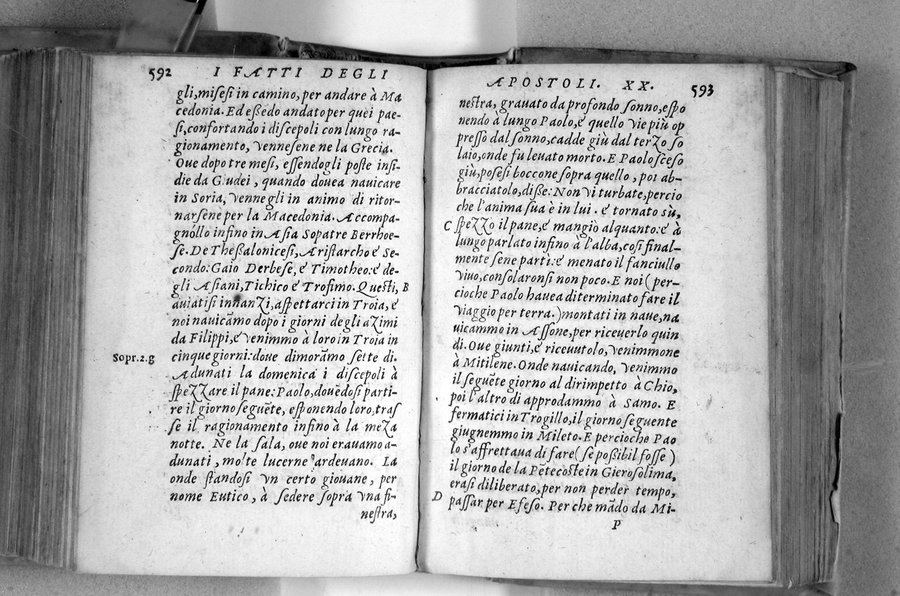 592 I FATTI DEGLI
gli, misesi in camino, per andare à Ma
cedonia. Ed eßẽdo andato per quei pae-
si, confortando i discepoli con lungo ra-
gionamento, vennesene ne la Grecia.
Oue dopo tre mesi, essendogli poste insi-
die da Giudei, quando douea nauicare
in Soria, vennegli in animo di ritor-
narsene per la Macedonia. Accompa-
gnóllo infino in Asia Sopatre Berrhoe-
se. De Theßalonicesi, Aristarcho e Se-
condo: Gaio Derbese, e Timotheo: e de-
gli Asiani, Tichico e Trofimo. Questi, B
auiatisi innanzi, aspettarci in Troia, e
noi nauicãmo dopo i giorni degli azimi
da Filippi, e venimmo à loro in Troia in
Sopr.2.g cinque giorni: doue dimorãmo sette dì.
Adunati la domenica i discepoli à
spezzare il pane: Paolo, douẽdosi parti-
re il giorno seguẽte, esponendo loro, tras
se il ragionamento infino à la meza
notte. Ne la sala, oue noi erauamo a-
dunati, molte lucerne ardeuano. La
onde stãdosi vn certo giouane, per
nome Eutico, à sedere sopra vna fi-
nestra,
APOSTOLI. XX. 593
nestra, grauato da profondo sonno, espo
nendo à lungo Paolo, e quello vie più op
presso dal sonno, cadde giù dal terzo so
laio, onde fu leuato morto. E Paolo sceso
giù, posesi boccone sopra quello, poi ab-
bracciatolo, diße: Non vi turbate, percio
che l'anima sua è in lui. e tornato su,
C spezzò il pane, e mangiò alquanto: e à
lungo parlato infino à l'alba, così final-
mente sene partì: e menato il fanciullo
viuo, consolaronsi non poco. E noi (per-
cioche Paolo hauea diterminato fare il
viaggio per terra.) montati in naue, na
uicammo in Assone, per riceuerlo quin
di. Oue giunti, e riceuutolo, venimmone
à Mitilene. Onde nauicando, venimmo
il seguẽte giorno al dirimpetto à Chio,
poi l'altro dì approdammo à Samo. E
fermatici in Trogillo, il giorno seguente
giugnemmo in Mileto. E percioche Pao
lo s'affrettaua di fare (se poßibil fosse)
il giorno de la Pẽtecoste in Gierosolima,
erasi diliberato, per non perder tempo,
D passar per Efeso. Perche mãdò da Mi-
P